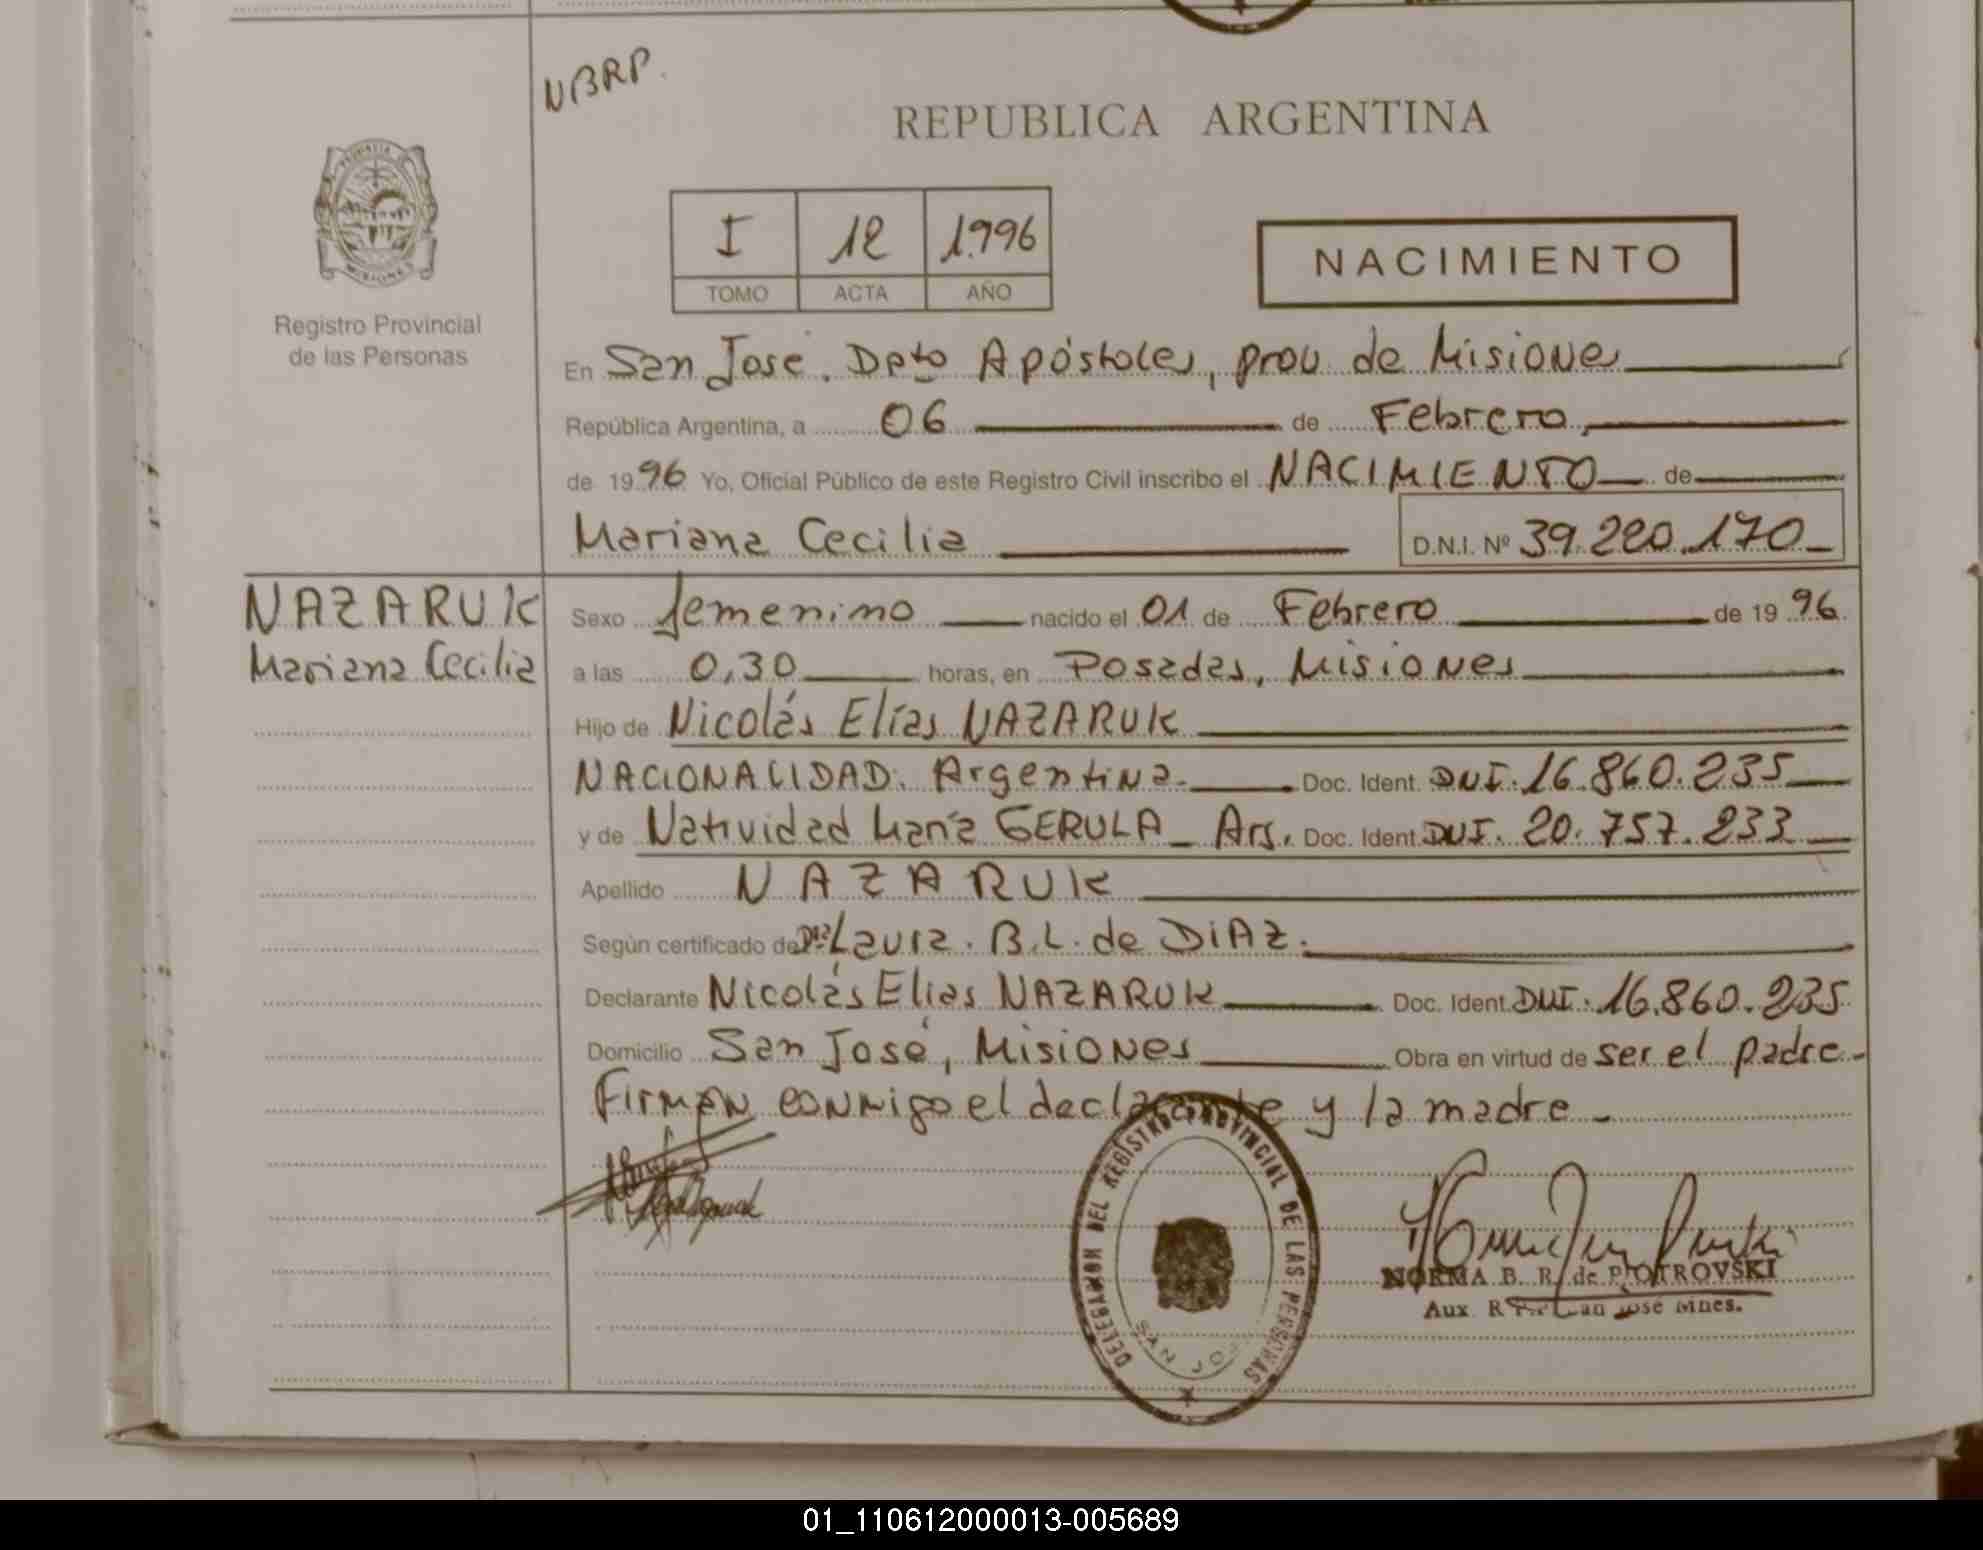 NBRP.
REPUBLICA ARGENTINA
PROVINCIA DE
MISIONES
Registro Provincial
de las Personas
I 12 1.996
TOMO ACTA AÑO
NACIMIENTO
En San José. Dpto Apóstoles, prov de Misiones
República Argentina, a 06 de Febrero,
de 1996 Yo, Oficial Público de este Registro Civil inscribo el NACIMIENTO de
Mariana Cecilia D.N.I. Nº 39.220.170
NAZARUK
Mariana Cecilia
Sexo femenino nacido el 01 de Febrero de 1996.
a las 0,30 horas, en Posadas, Misiones
Hijo de Nicolás Elías NAZARUK
NACIONALIDAD: Argentina. Doc. Ident. DNI. 16.860.235
y de Natividad María GERULA Arg. Doc. Ident. DNI. 20.757.233
Apellido NAZARUK
Según certificado de Dra. Laura. B.L. de DIAZ.
Declarante Nicolás Elías NAZARUK Doc. Ident. DNI. 16.860.235
Domicilio San José, Misiones Obra en virtud de ser el padre.
Firman conmigo el declarante y la madre.
DELEGACION DEL REGISTRO PROVINCIAL DE LAS PERSONAS
SAN JO
NORMA B. R. de PIOTROVSKI
Aux. San José Mnes.
01_110612000013-005689